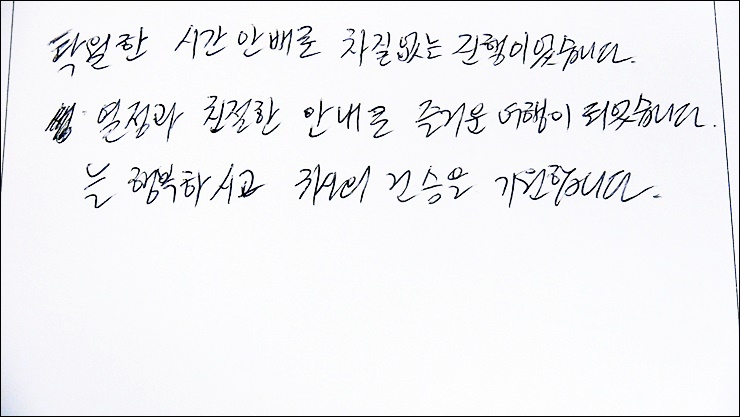 탁월한 시간안배로 차질없는 진행이었습니다.
열정과 친절한 안내로 즐거운 여행이 되었습니다.
늘 행복하시고 건승을 기원합니다.